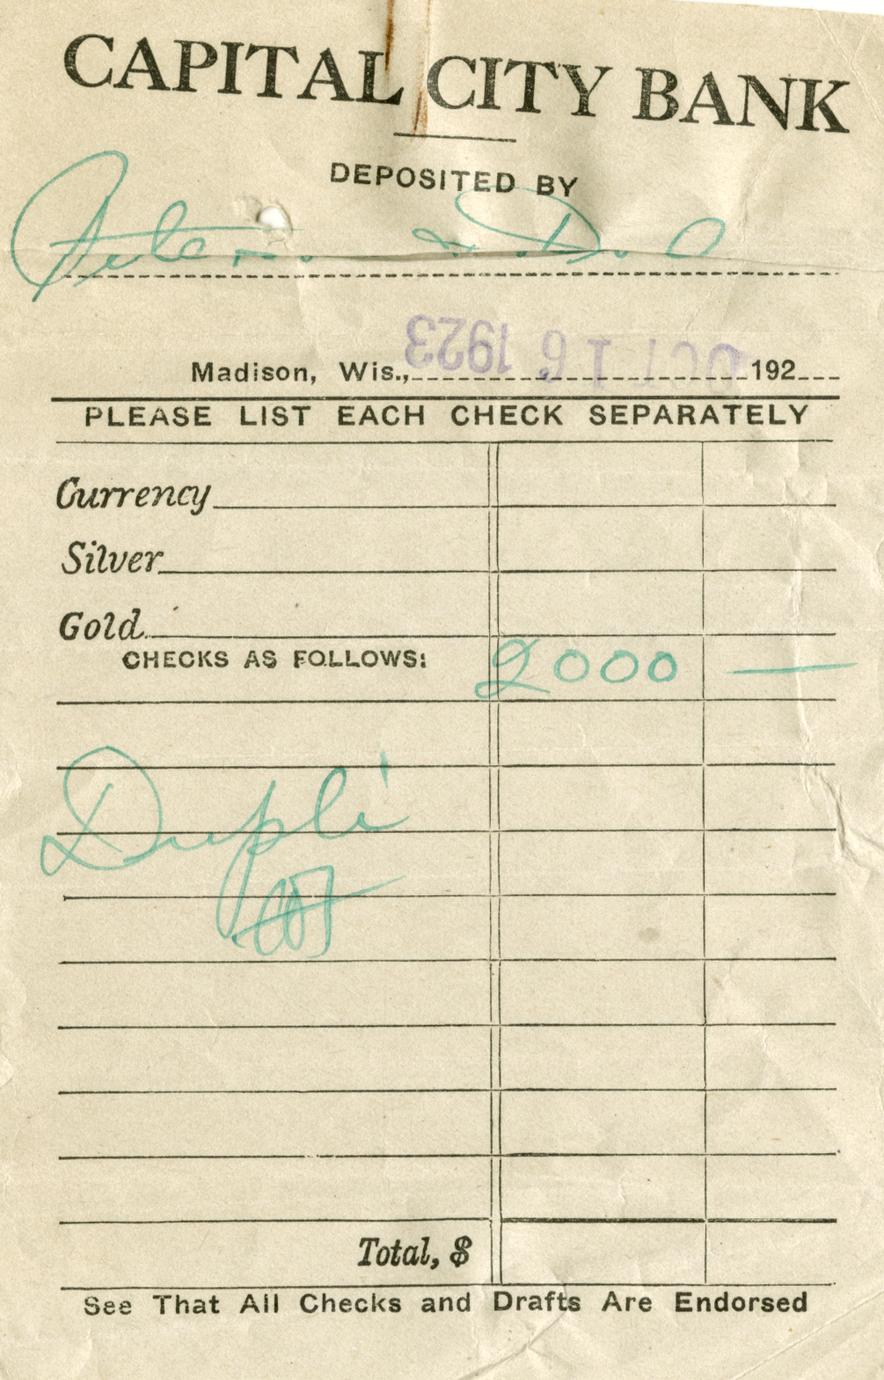 CAPITAL CITY BANK
DEPOSITED BY
Madison, Wis., OCT 16 1923 192
PLEASE LIST EACH CHECK SEPARATELY
Currency
Silver
Gold
CHECKS AS FOLLOWS: 2000 —
Dupli
Total, $
See That All Checks and Drafts Are Endorsed